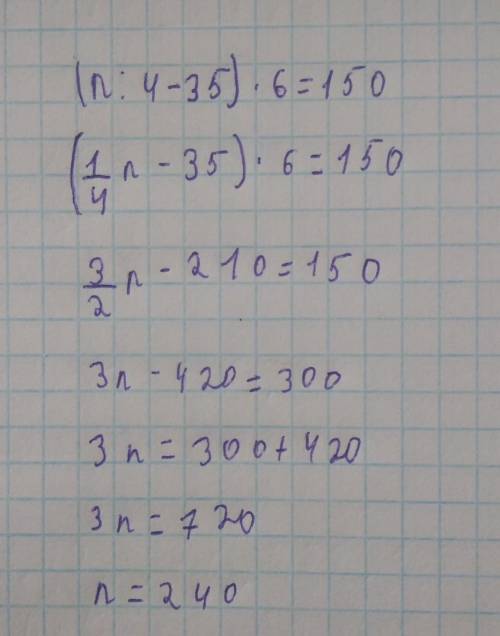 (n : 4 - 35) · 6 = 150
(1/4 n - 35) · 6 = 150
3/2 n - 210 = 150
3n - 420 = 300
3n = 300 + 420
3n = 720
n = 240